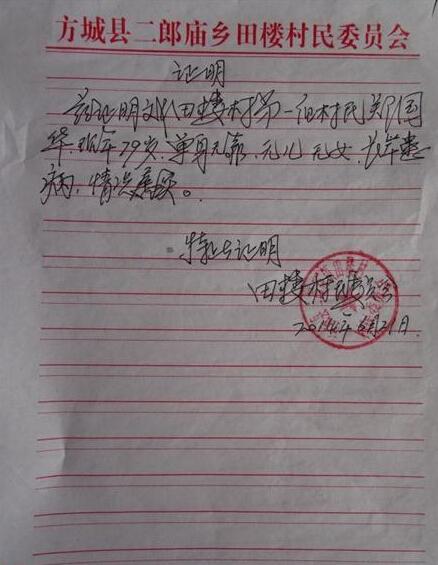 方城县二郎庙乡田楼村民委员会
证明
兹证明 田楼村第一组村民 国
华,现年79岁,单身无靠,无儿无女,长年患
病,情况属实。
特此证明
田楼村民委员会
2014年5月21日